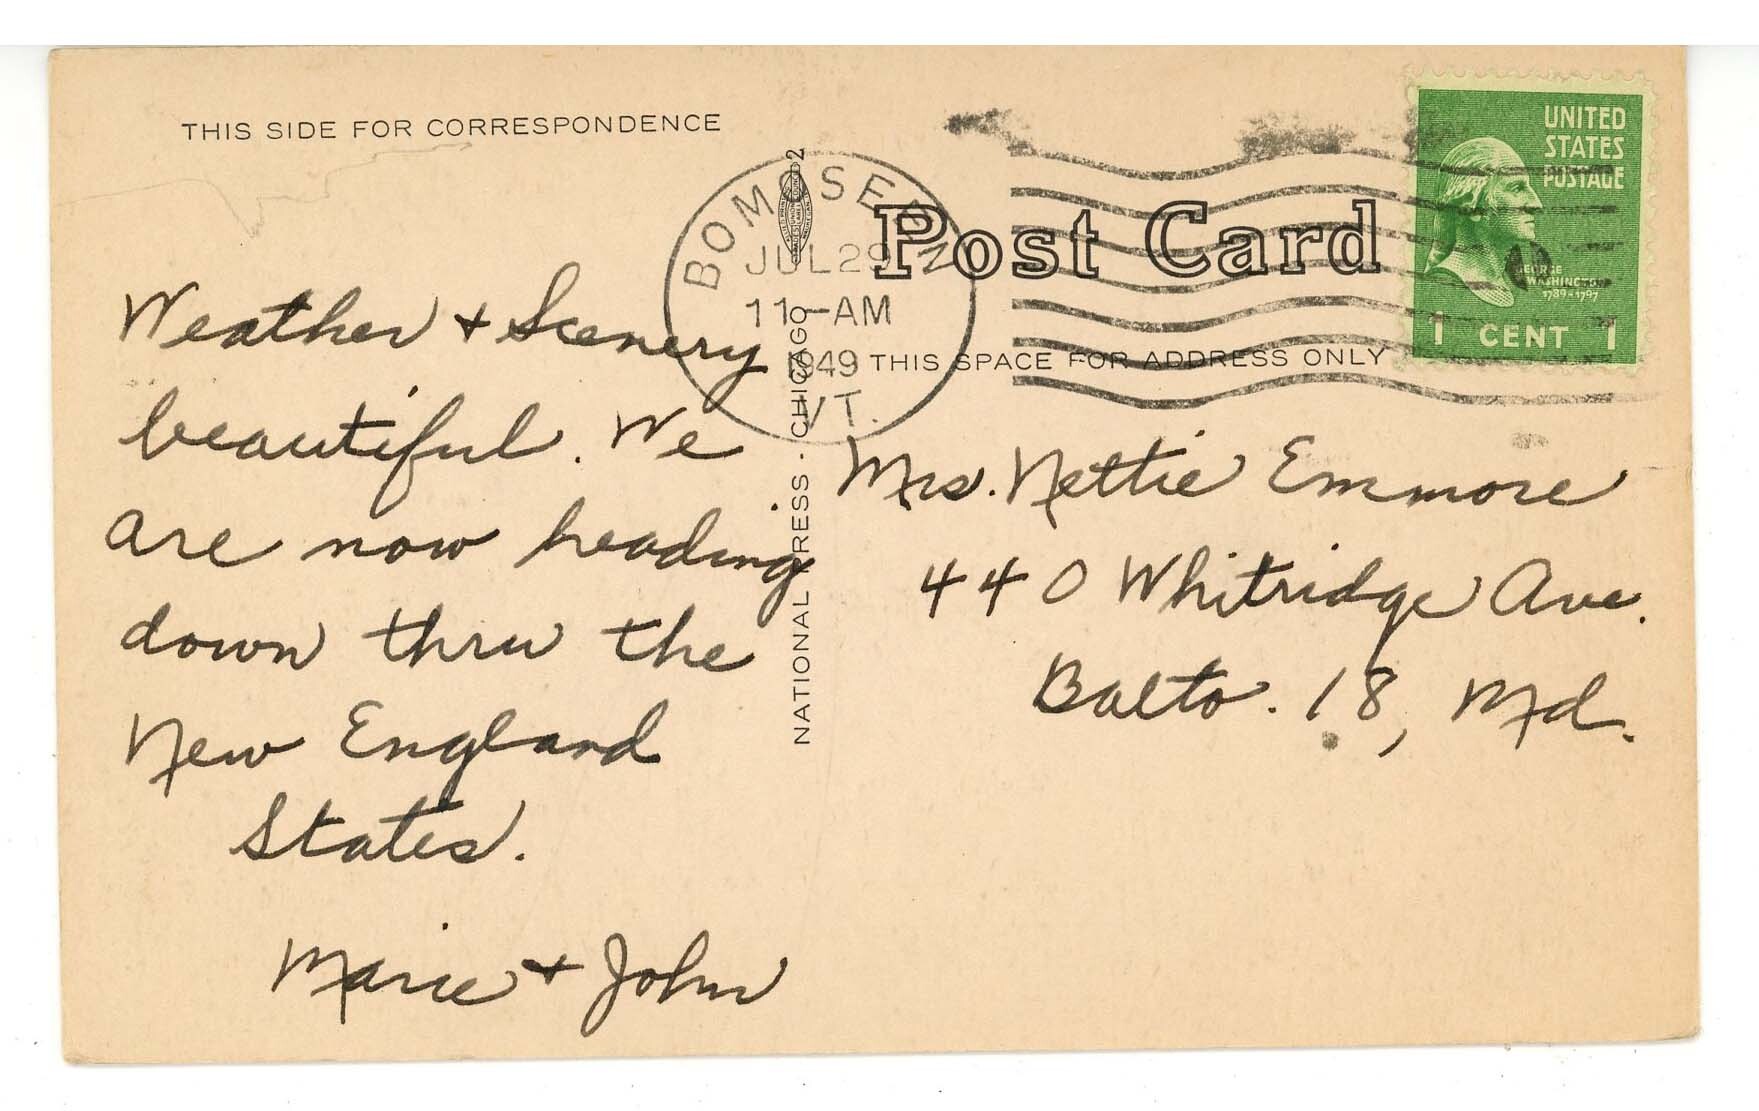 THIS SIDE FOR CORRESPONDENCE
Weather + Scenery
beautiful. We
are now heading
down thru the
New England
States.
Marie + John
BOMOSEEN
JUL 29
11-AM
1949
VT.
2
NATIONAL PRESS · CHICAGO
Post Card
THIS SPACE FOR ADDRESS ONLY
UNITED
STATES
POSTAGE
GEORGE
WASHINGTON
1789-1797
1 CENT 1
Mrs. Nettie Emmore
440 Whitridge Ave.
Balto. 18, Md.